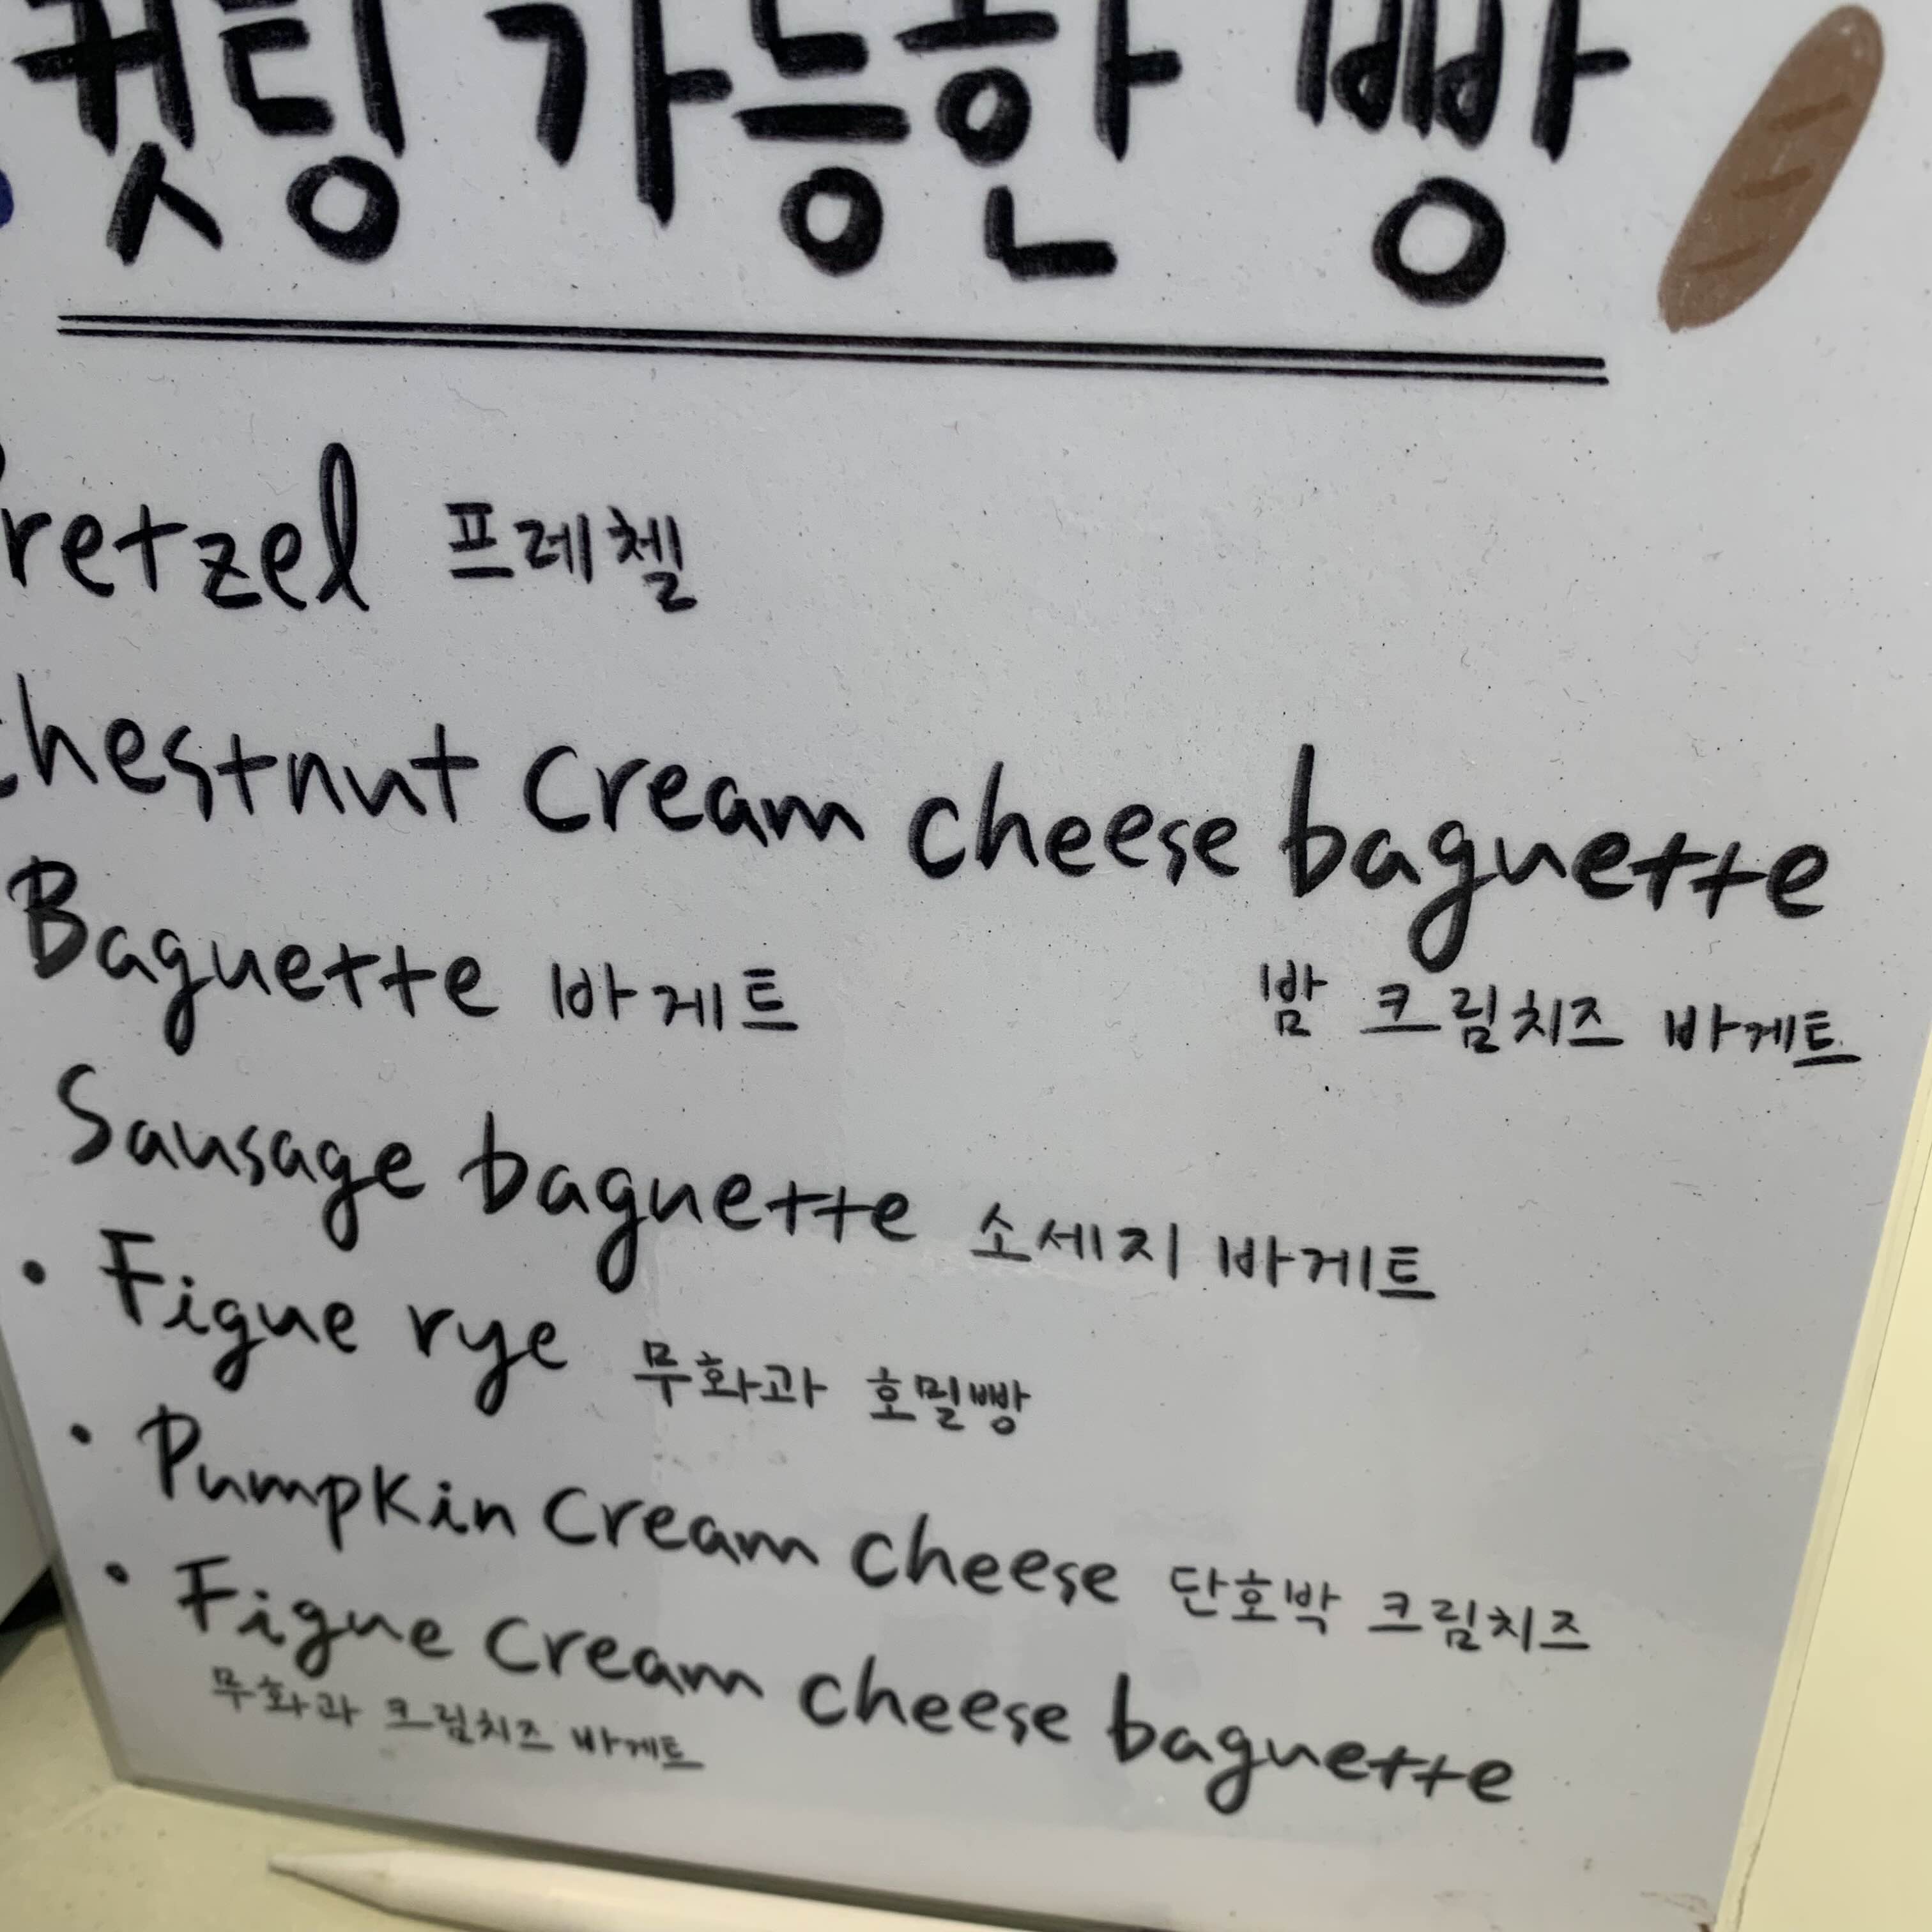 컷팅 가능한 빵
retzel 프레첼
chestnut cream cheese baguette
밤 크림치즈 바게트
Baguette 바게트
Sausage baguette 소세지 바게트
• Figue rye 무화과 호밀빵
• Pumpkin cream cheese 단호박 크림치즈
• Figue cream cheese baguette
무화과 크림치즈 바게트